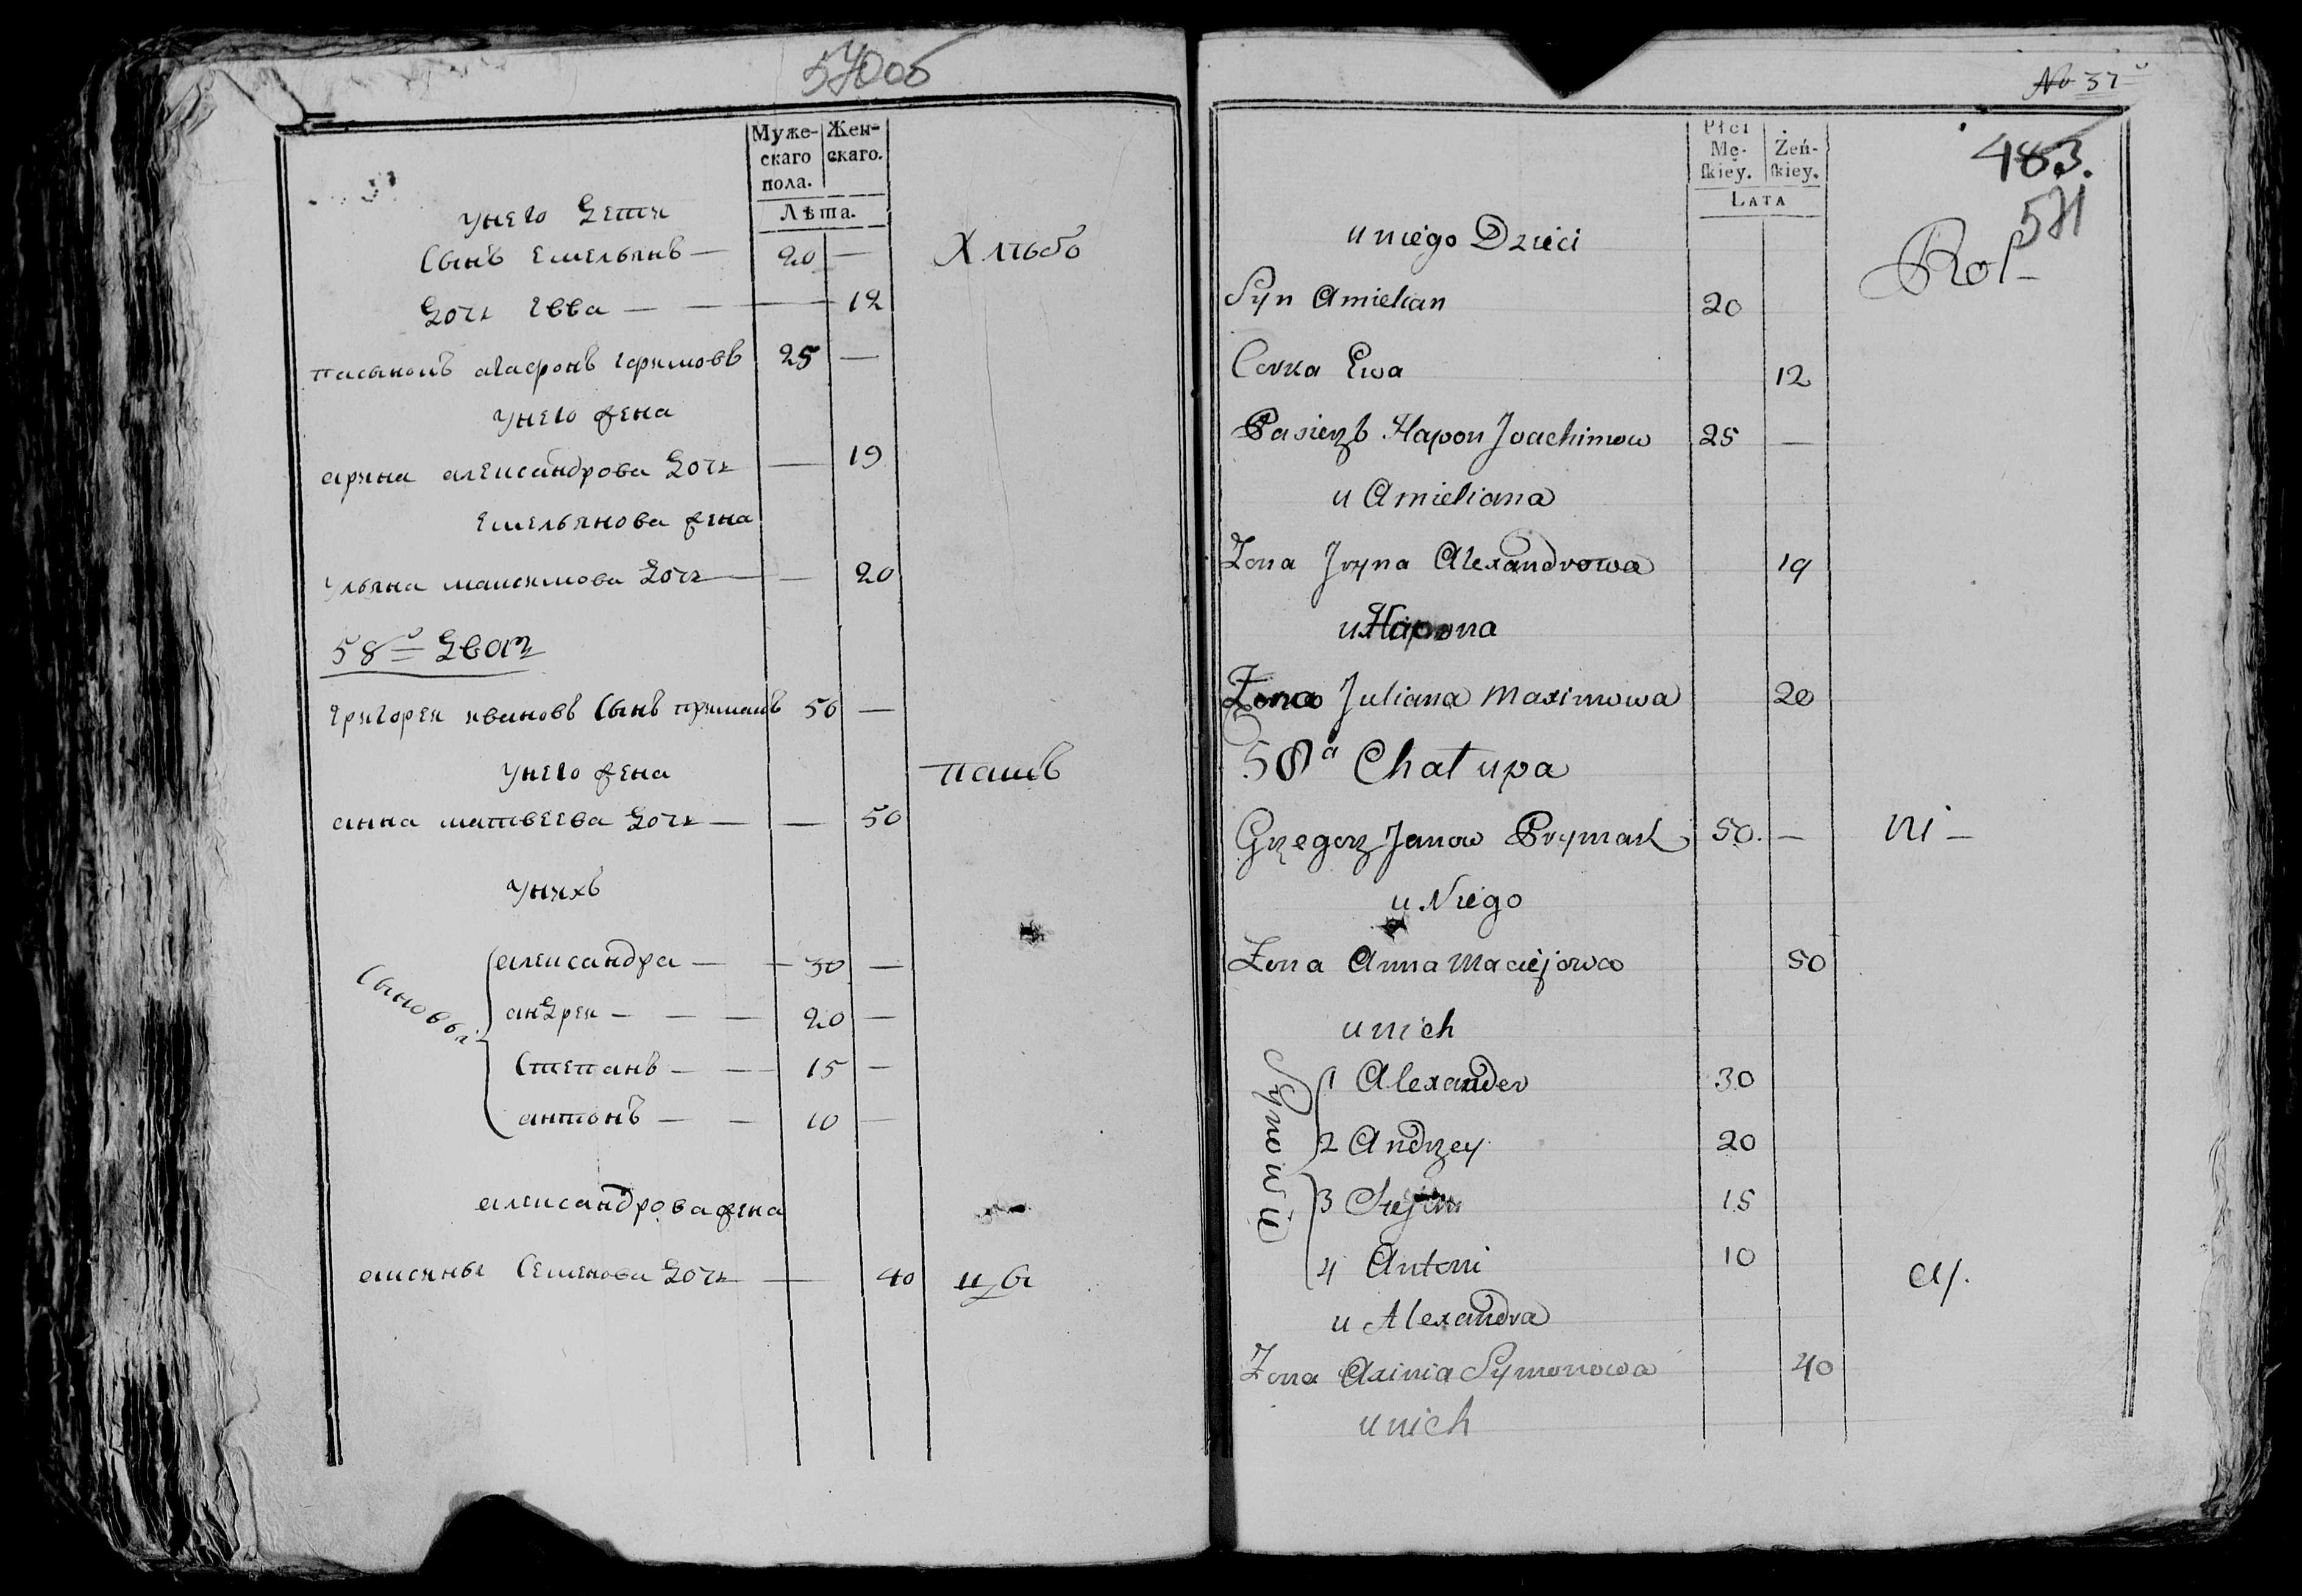 570об
Муже-
скаго
пола.
Жен-
скаго.
Лѣта.
унего Дети
Сынъ Емельянъ — 20 —
Хлѣбо
Дочь Евва — — 12
пасынокъ Агафонъ Ефимовъ 25 —
унего жена
арина александрова Дочь — 19
Емельянова жена
Ульяна максимова Дочь — — 20
58й Двор
Григореи ивановъ Сынъ примакъ 50 —
унего жена
пашъ
анна матвеева Дочь — — 50
унихъ
Сыновья
александра — — 30 —
андреи — — — 20 —
Степанъ — — 15 —
антонъ — — 10 —
александрова жена
аксинья Семенова Дочь — 40
цы
No 37
Płci
Mę-
skiey.
Żeń-
skiey.
Lata
483.
571
Rol-
u niego Dzieci
Syn Amielian 20
Corka Ewa 12
Pasierzb Hapon Joachimow 25 —
u Amieliana
Zona Jryna Alexandrowa 19
u Hapona
Zona Juliana Maximowa 20
58a Chałupa
Grzegorz Janow Prymak 50. — ni —
u Niego
Zona Anna Maciejowa 50
u nich
Synowie
1 Alexander 30
2 Andrzey 20
3 Stefan 15
4 Antoni 10
cy.
u Alexandra
Zona Axinia Symonowa 40
u nich